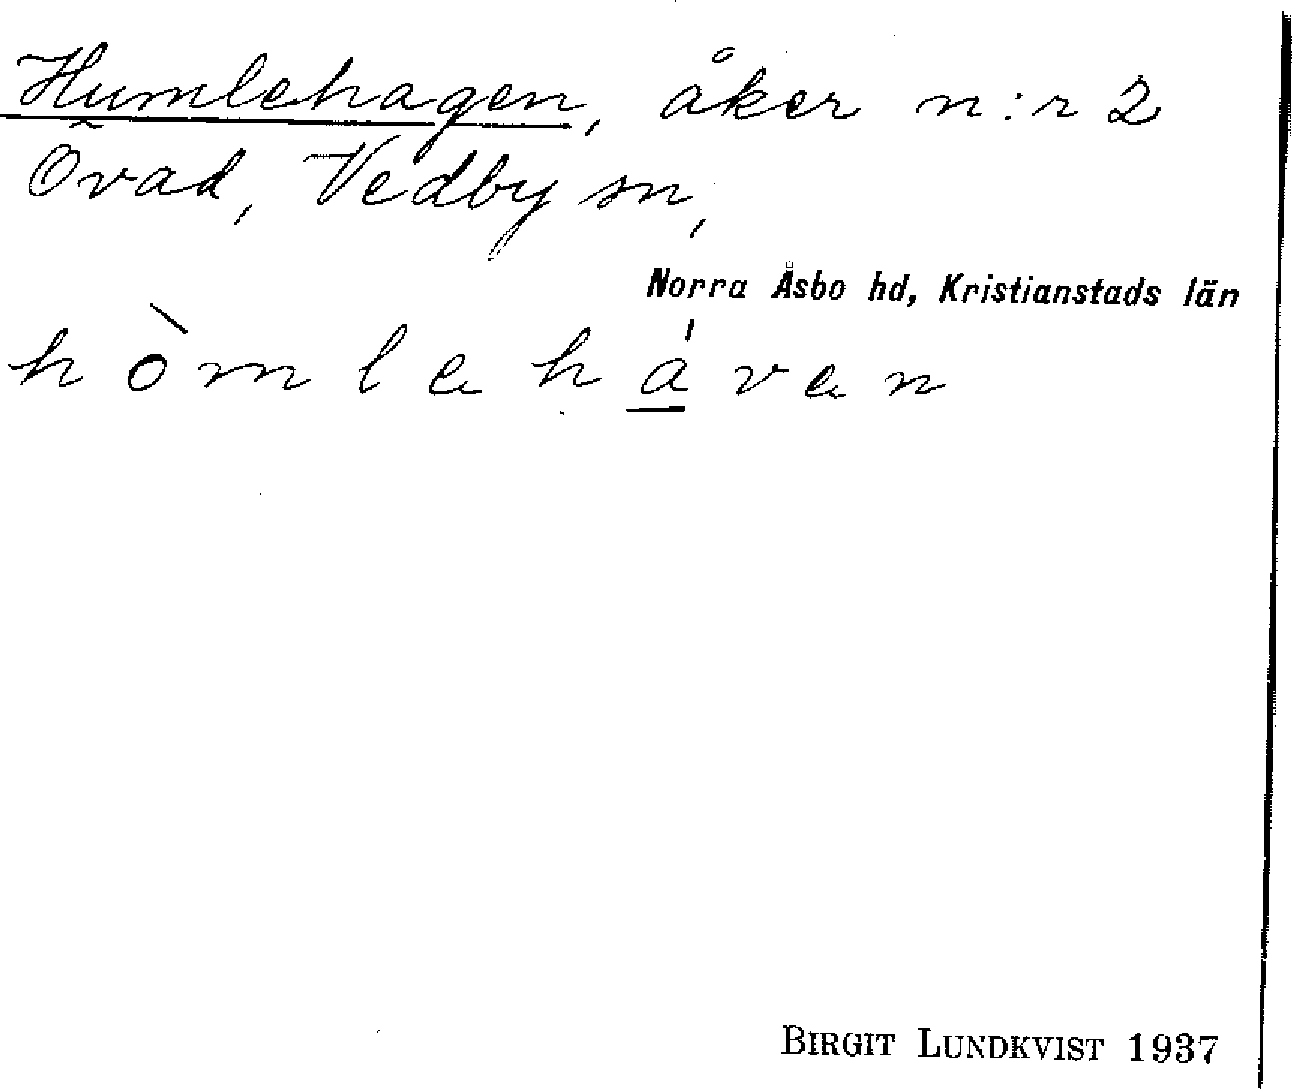 Humlehagen, åker n:r 2
Övad, Vedby sn,
Norra Åsbo hd, Kristianstads län
hòmlehá̱ven
BIRGIT LUNDKVIST 1937